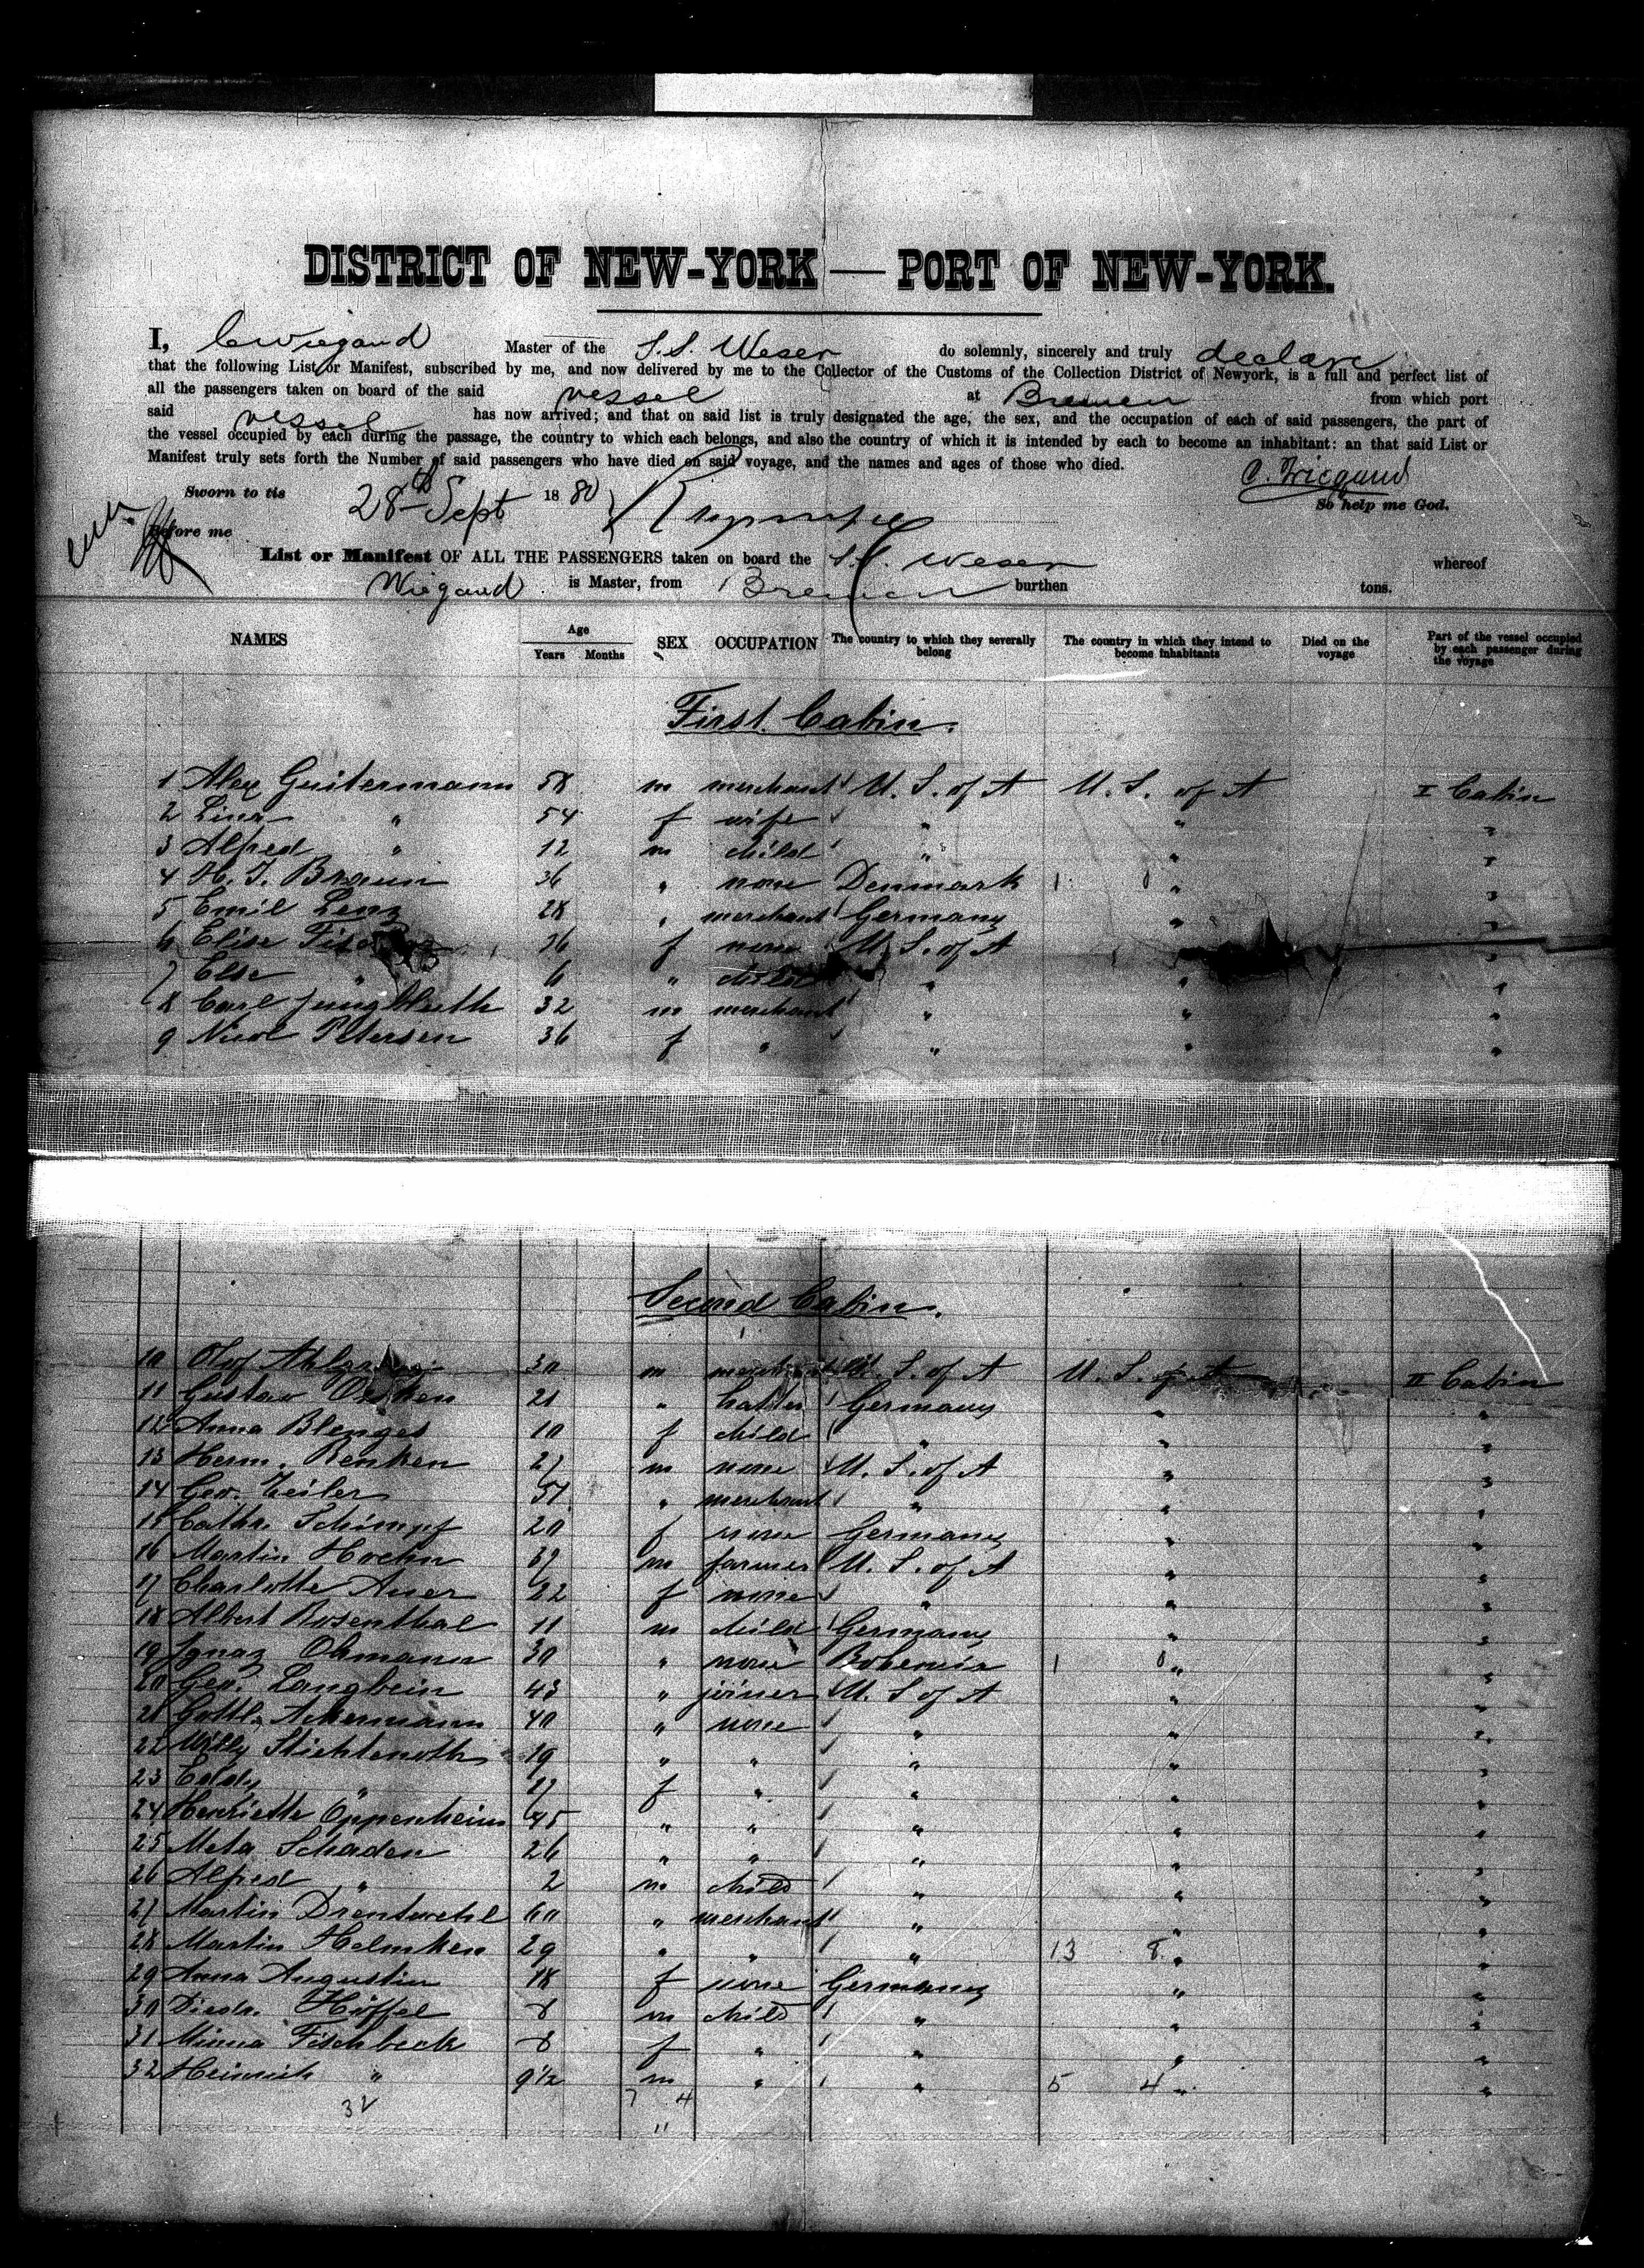 DISTRICT OF NEW-YORK — PORT OF NEW-YORK.
I, C Wiegand Master of the S.S. Weser do solemnly, sincerely and truly declare
that the following List or Manifest, subscribed by me, and now delivered by me to the Collector of the Customs of the Collection District of Newyork, is a full and perfect list of
all the passengers taken on board of the said vessel at Bremen from which port
said vessel has now arrived; and that on said list is truly designated the age, the sex, and the occupation of each of said passengers, the part of
the vessel occupied by each during the passage, the country to which each belongs, and also the country of which it is intended by each to become an inhabitant: an that said List or
Manifest truly sets forth the Number of said passengers who have died on said voyage, and the names and ages of those who died.
C. Wiegand
Sworn to tis 28th Sept 1880 So help me God.
Before me
List or Manifest OF ALL THE PASSENGERS taken on board the S.S. Weser whereof
Wiegand is Master, from Bremen burthen tons.
NAMES Age Years Months SEX OCCUPATION The country to which they severally belong The country in which they intend to become inhabitants Died on the voyage Part of the vessel occupied by each passenger during the voyage
First Cabin.
1 Alex Guitermann 58 m merchant U. S. of A U. S. of A I Cabin
2 Lina " 54 f wife " " "
3 Alfred " 12 m child " " "
4 H. J. Braun 36 " none Denmark 1 0 " "
5 Emil Lenz 28 " merchant Germany " "
6 Elise 36 f none U. S. of A "
7 Else " 6 " child " " "
8 Carl Jungbluth 32 m merchant " " "
9 Nicol Petersen 36 f " " " "
Second Cabin.
10 Olof 30 m U. S. of A U. S. of A II Cabin
11 Gustav 21 " hatter Germany " "
12 Anna Blenges 10 f child " " "
13 Herm. Renken 27 m none U. S. of A " "
14 Geo. Zeiler 51 " merchant " " "
15 Cathr. Schimpf 20 f none Germany " "
16 Martin Hoehn 37 m farmer U. S. of A " "
17 Charlotte Auer 22 f none " " "
18 Albert Rosenthal 11 m child Germany " "
19 Ignaz Ohmann 30 " none Bohemia 1 0 " "
20 Geo. Langbein 43 " joiner U. S of A " "
21 Gottl. Ackermann 40 " none " " "
22 Willy Stichtenoth 19 " " " " "
23 Eddy " 17 f " " " "
24 Henriette Oppenheim 45 " " " " "
25 Meta Schaden 26 " " " " "
26 Alfred " 2 m child " " "
27 Martin Drentwehl 60 " merchant " " "
28 Martin Helmken 29 " " " 13 8 " "
29 Anna Augustin 18 f none Germany " "
30 Diedr. Höffel 8 m child " " "
31 Minna Fischbeck 8 f " " " "
32 Heinrich " 9 1/2 m " " 5 4 " "
32 7 4
11